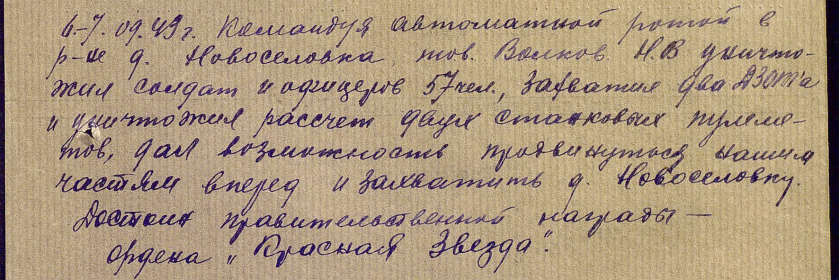 6-7. 09.43г. Командуя автоматной ротой в
р-не д. Новоселовка тов. Волков Н.В уничто-
жил солдат и офицеров 57 чел., захватил два Дзот'а
и уничтожил рассчет двух станковых пулеме-
тов, дал возможность продвинуться нашим
частям вперед и захватить д. Новоселовку.
Достоин правительственной награды —
ордена „Красная Звезда".